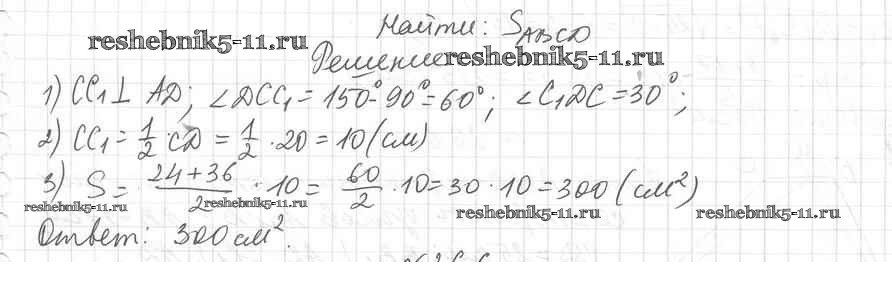 Найти: S_ABCD
reshebnik5-11.ru
Решение reshebnik5-11.ru
1) CC₁ ⊥ AD; ∠DCC₁ = 150° - 90° = 60°; ∠C₁DC = 30°;
2) CC₁ = 1/2 · CD = 1/2 · 20 = 10 (см)
3) S = (24+36)/2 · 10 = 60/2 · 10 = 30 · 10 = 300 (см²)
reshebnik5-11.ru reshebnik5-11.ru reshebnik5-11.ru reshebnik5-11.ru
Ответ: 300 см².